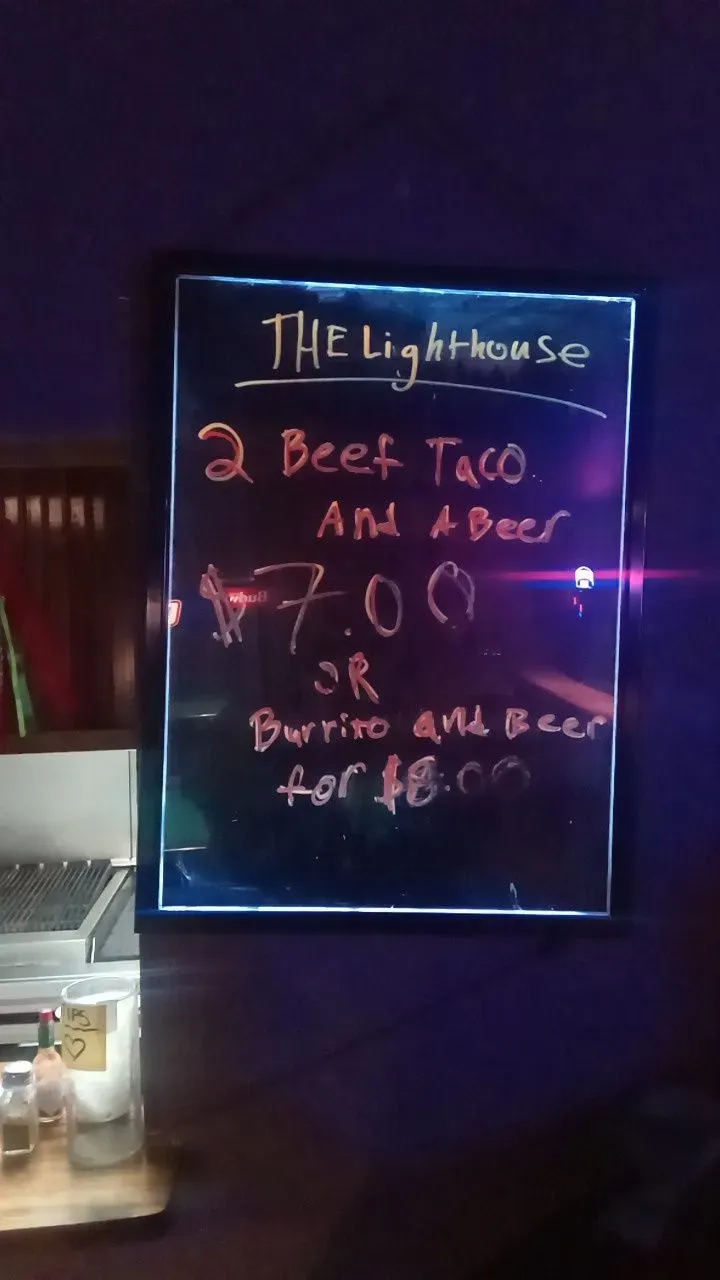 THE Lighthouse
2 Beef Taco
And A Beer
$7.00
OR
Burrito and Beer
for $8.00